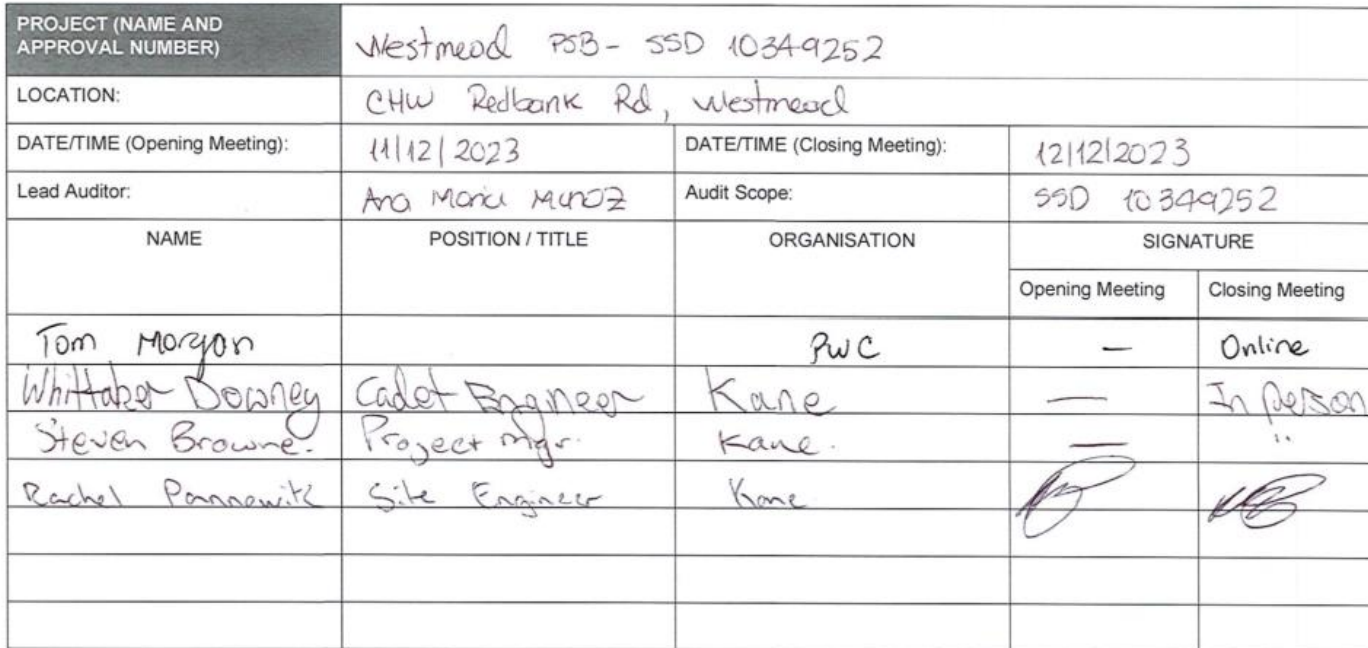 PROJECT (NAME AND
APPROVAL NUMBER)
Westmead PSB - SSD 10349252
LOCATION:
CHW Redbank Rd, Westmead
DATE/TIME (Opening Meeting):
11/12/2023
DATE/TIME (Closing Meeting):
12/12/2023
Lead Auditor:
Ana Maria Munoz
Audit Scope:
SSD 10349252
NAME
POSITION / TITLE
ORGANISATION
SIGNATURE
Opening Meeting
Closing Meeting
Tom Morgan PwC — Online
Whittaker Downey Cadet Engineer Kane — In person
Steven Browne. Project mgr. Kane. — "
Rachel Pannowitz Site Engineer Kane